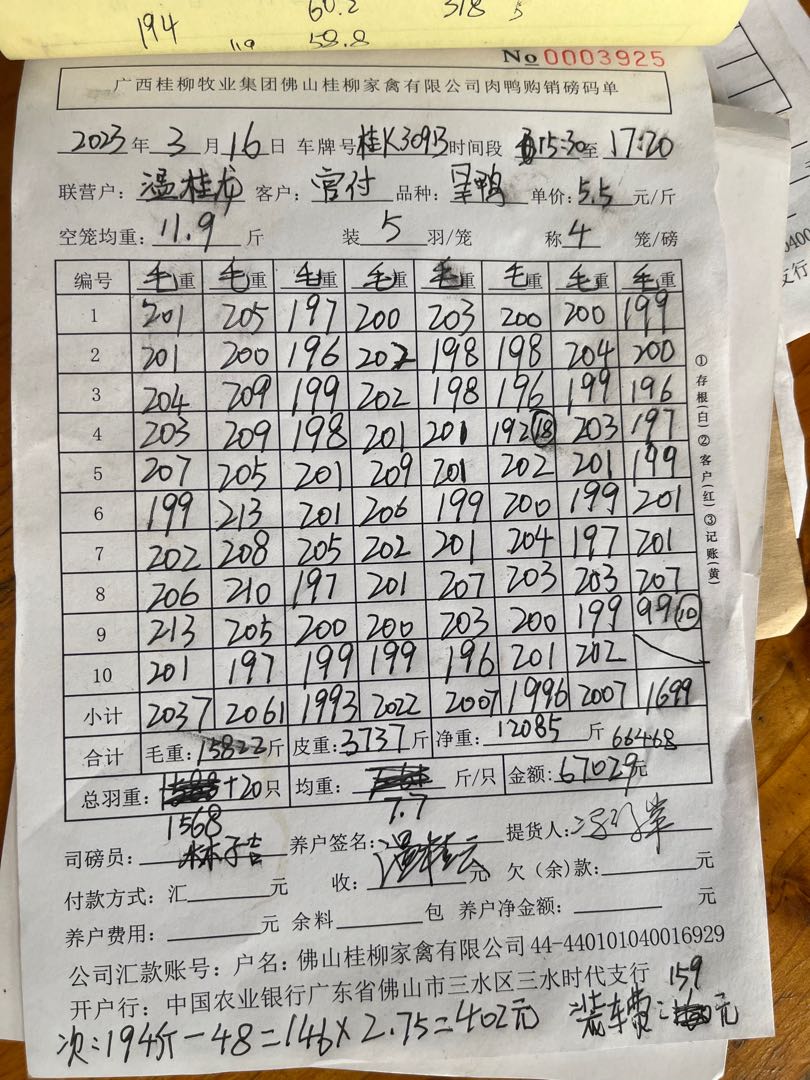 60.2 318 5
194
119 58.8
No 0003925
广西桂柳牧业集团佛山桂柳家禽有限公司肉鸭购销磅码单
2023年 3 月 16 日 车牌号 桂K3093 时间段 15:30 至 17:20
联营户: 温桂龙 客户: 官付 品种: 呆鸭 单价: 5.5 元/斤
空笼均重: 11.9 斤 装 5 羽/笼 称 4 笼/磅
编号 毛重 毛重 毛重 毛重 毛重 毛重 毛重 毛重
1 201 205 197 200 203 200 200 199
2 201 200 196 202 198 198 204 200
3 204 209 199 202 198 196 199 196
4 203 209 198 201 201 192 18 203 197
5 207 205 201 209 201 202 201 199
6 199 213 201 206 199 200 199 201
7 202 208 205 202 201 204 197 201
8 206 210 197 201 207 203 203 207
9 213 205 200 200 203 200 199 99 10
10 201 197 199 199 196 201 202
小计 2037 2061 1993 2022 2007 1996 2007 1699
合计 毛重: 15822 斤 皮重: 3737 斤 净重: 12085 斤 66468
总羽重: +20 只 均重: 斤/只 金额: 67029元
1568 7.7
司磅员: 林子吉 养户签名: 温桂云 提货人:
付款方式: 汇 元 收: 元 欠(余)款: 元
养户费用: 元 余料 包 养户净金额: 元
公司汇款账号: 户名: 佛山桂柳家禽有限公司 44-440101040016929
开户行: 中国农业银行广东省佛山市三水区三水时代支行 159
次: 194斤-48=146×2.75=402元 装车费: 元
①存根(白)②客户(红)③记账(黄)